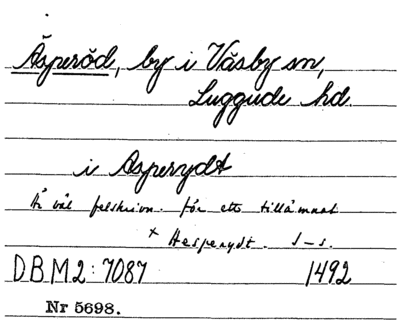 Äsperöd, by i Väsby sn,
Luggude hd.
i Asperydt
Är väl felskrivn. för ett tillämnat
× Hesperydt. S-s.
DBM2:7087 1492
Nr 5698.